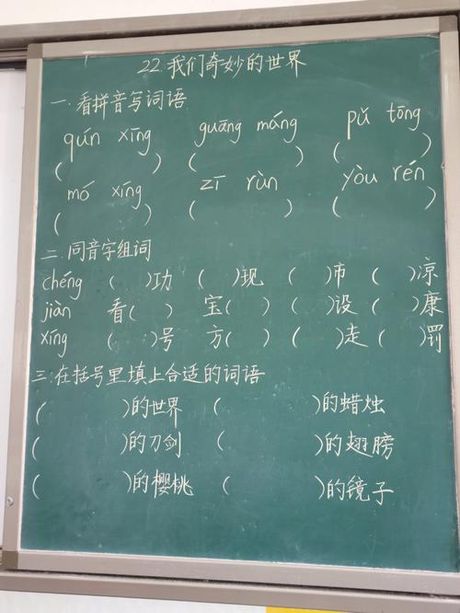 22.我们奇妙的世界
一.看拼音写词语
qún xīng guāng máng pǔ tōng
( ) ( ) ( )
mó xíng zī rùn yòu rén
( ) ( ) ( )
二.同音字组词
chéng ( )功 ( )现 ( )市 ( )凉
jiàn 看( ) 宝( ) ( )设 ( )康
xíng ( )号 方( ) ( )走 ( )罚
三.在括号里填上合适的词语
( )的世界 ( )的蜡烛
( )的刀剑 ( )的翅膀
( )的樱桃 ( )的镜子